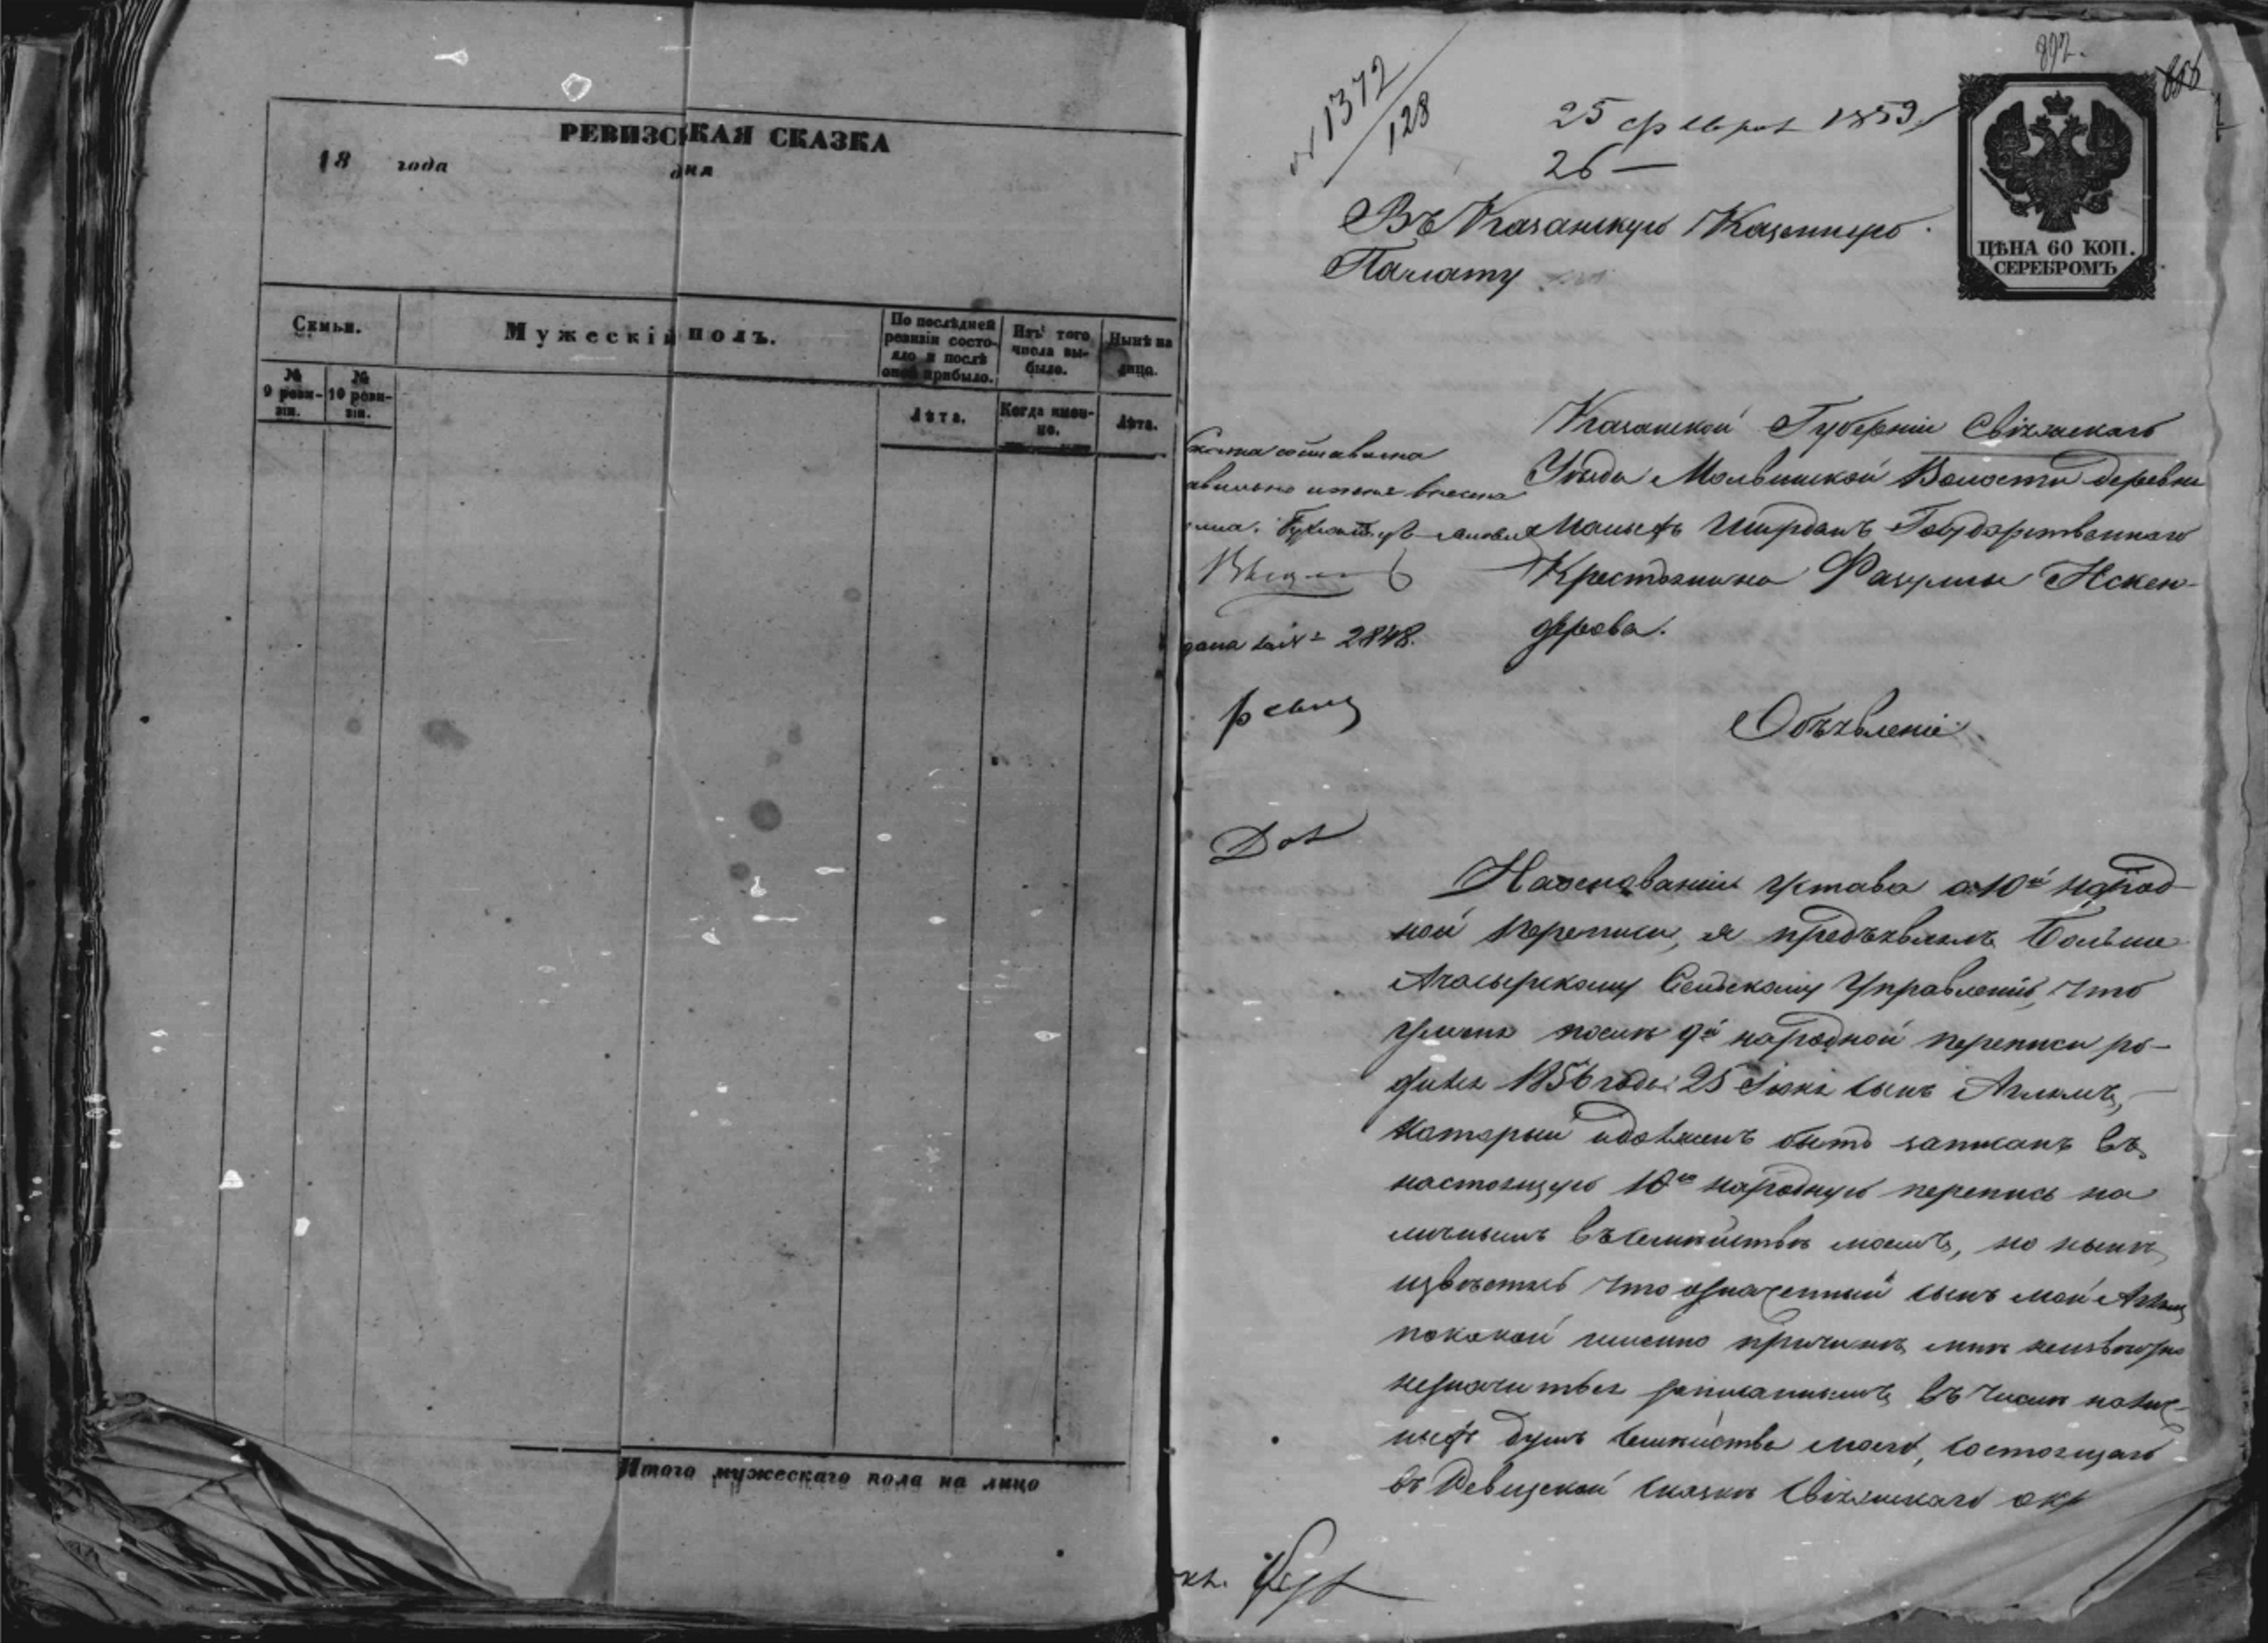 РЕВИЗСКАЯ СКАЗКА
18 года дня
Семьи.
Мужескій полъ.
По послѣдней ревизіи состояло и послѣ оной прибыло.
Изъ того числа выбыло.
Нынѣ на лицо.
№ 9 реви-зіи.
№ 10 реви-зіи.
Лѣта.
Когда имен-но.
Лѣта.
Итого мужескаго пола на лицо
892.
1372
128
25 февраля 1859
26 —
ЦѢНА 60 КОП.
СЕРЕБРОМЪ
Въ Казанскую Казенную
Палату
Казанской Губерніи Свіяжскаго
Уѣзда Молвинской Волости деревни
Малыхъ Ширданъ Государственнаго
Крестьянина
дерова.
2848.
Объявленіе.
На основаніи устава о 10й народ-
ной переписи, я предъявлялъ Больше
Ачасырскому Сельскому Управленію, что
у меня после 9й народной переписи ро-
дился 1856 года 25 сынъ
который и долженъ быть записанъ въ
настоящую 10ю народную перепись на
личнымъ въ семействѣ моемъ, но нынѣ
извѣстясь что означенный сынъ мой
по какой именно причинѣ мнѣ неизвѣстно
незначится записаннымъ въ числѣ налич-
ныхъ душъ семейства моего, состоящаго
въ Ревизской сказкѣ Свіяжскаго окр